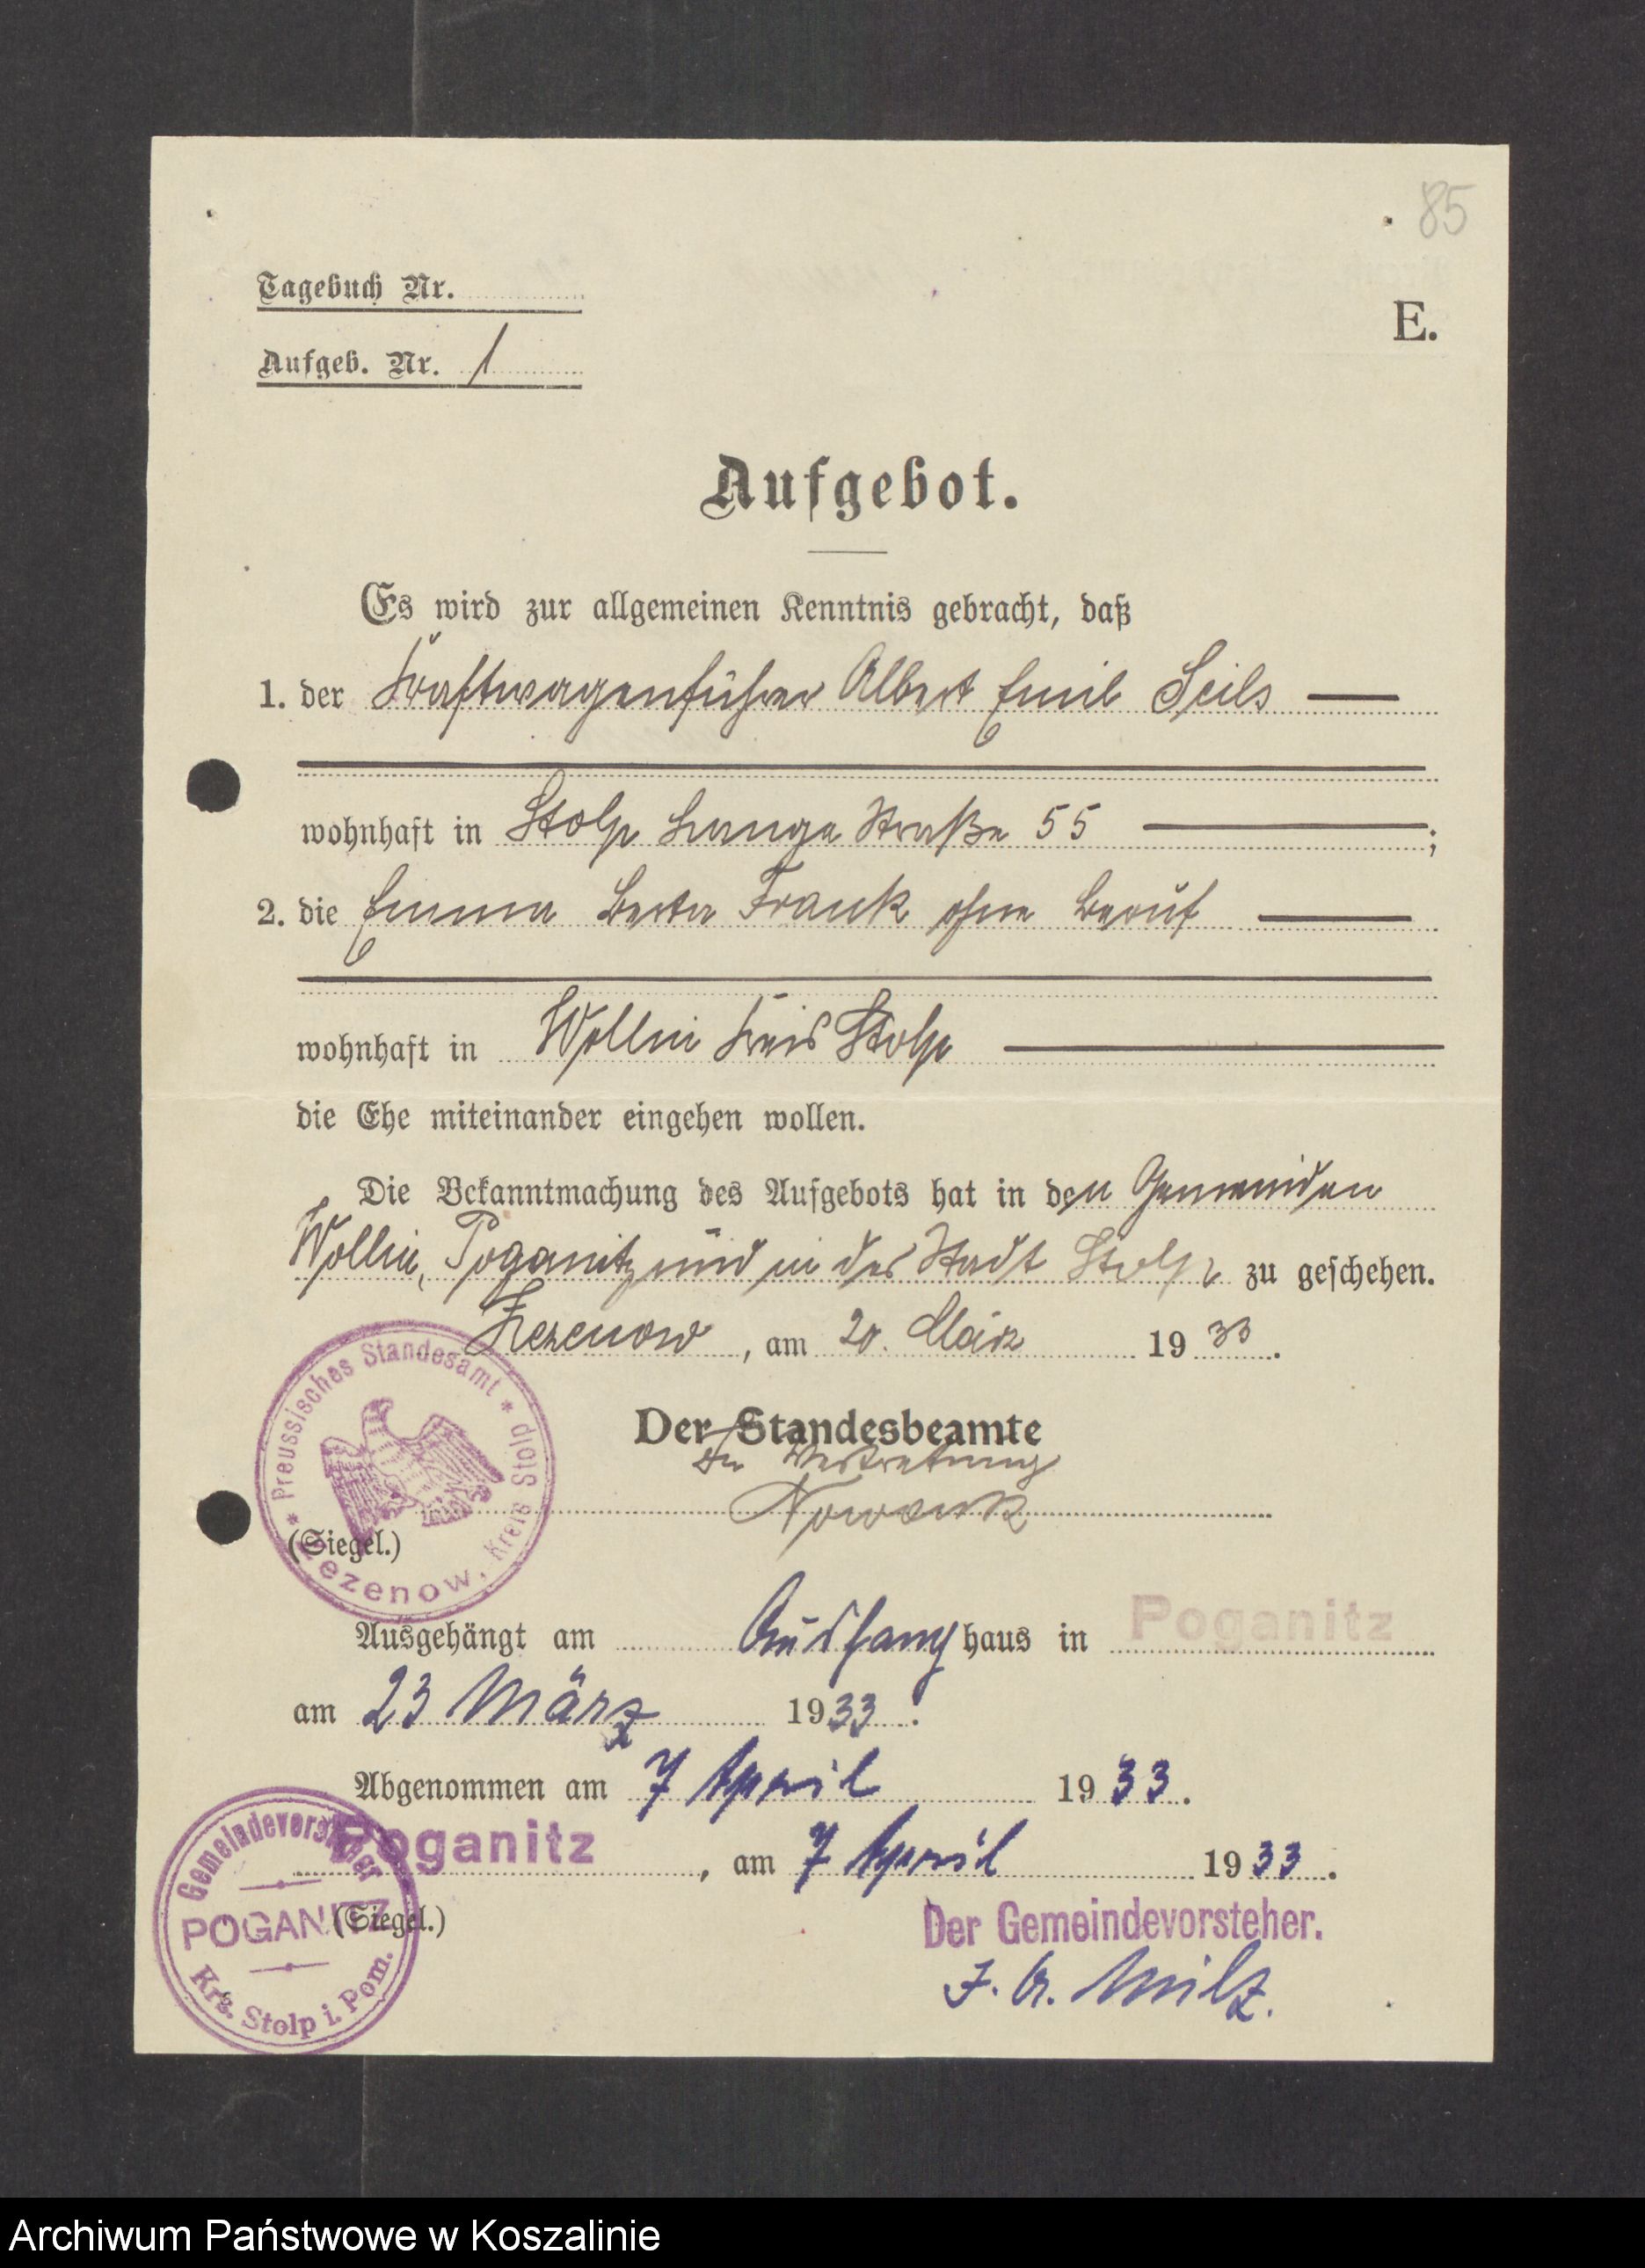 85
Tagebuch Nr.
E.
Aufgeb. Nr. 1
Aufgebot.
Es wird zur allgemeinen Kenntnis gebracht, daß
1. der Kraftwagenführer Albert Emil Seils
wohnhaft in Stolp Lange Straße 55 ;
2. die Emma Berta Frank ohne Beruf
wohnhaft in Wollin Kreis Stolp
die Ehe miteinander eingehen wollen.
Die Bekanntmachung des Aufgebots hat in den Gemeinden
Wollin, Poganitz und in der Stadt Stolp zu geschehen.
Zezenow, am 20. März 1933.
Preussisches Standesamt * Zezenow, Kreis Stolp *
Der Standesbeamte
In Vertretung
(Siegel.)
Ausgehängt am Aushang haus in Poganitz
am 23 März 1933.
Abgenommen am 7 April 1933.
Poganitz, am 7 April 1933.
Gemeindevorsteher
POGANITZ
Krs. Stolp i. Pom.
(Siegel.)
Der Gemeindevorsteher.
J. A. Milz.
Archiwum Państwowe w Koszalinie